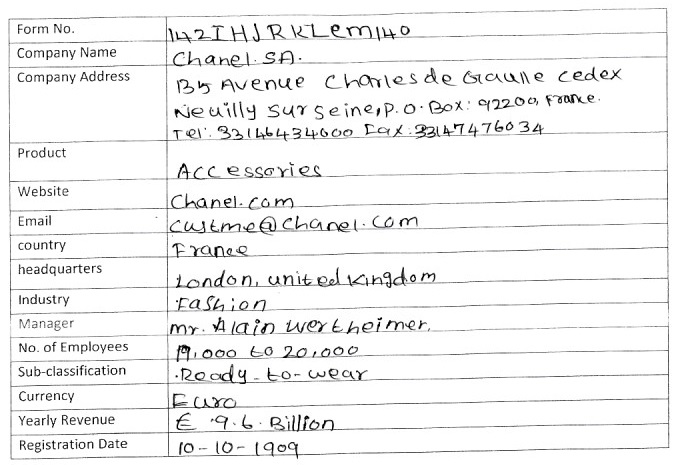 Form No. 142IHJRKLem140
Company Name Chanel. SA.
Company Address 135 Avenue Charles de Gaulle cedex
Neuilly sur seine, P.O. Box: 92200, France.
Tel: 33146434000 Fax: 33147476034
Product Accessories
Website Chanel.com
Email custme@chanel.com
country France
headquarters London, united kingdom
Industry Fashion
Manager mr. Alain wertheimer.
No. of Employees 19,000 to 20,000
Sub-classification Ready-to-wear
Currency Euro
Yearly Revenue € 9.6. Billion
Registration Date 10-10-1909